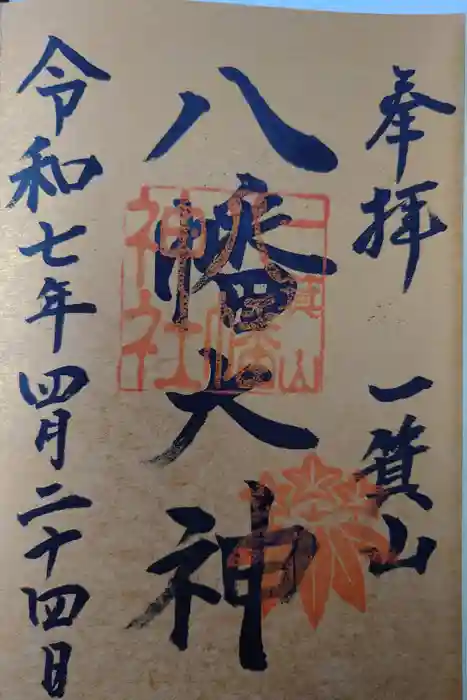 奉拝 一箕山
八幡大神
一箕山
八幡
神社
令和七年四月二十四日